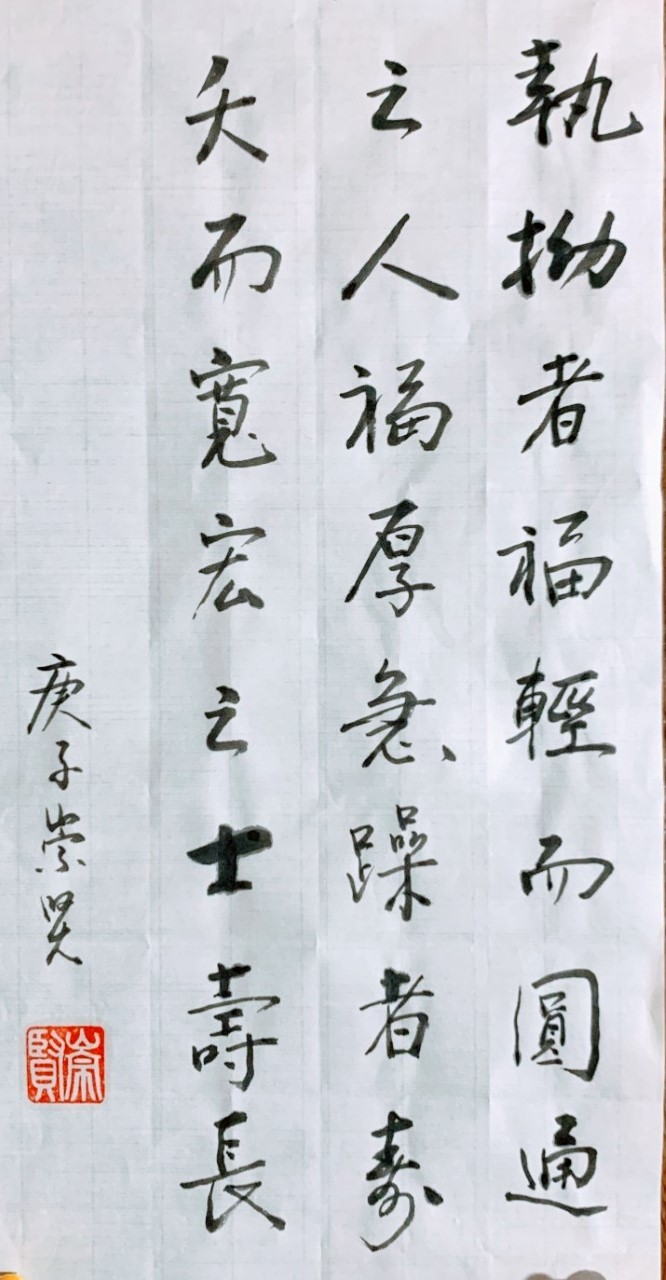 執拗者福輕而圓通
之人福厚急躁者寿
夭而寬宏之士壽長
庚子崇賢
崇賢